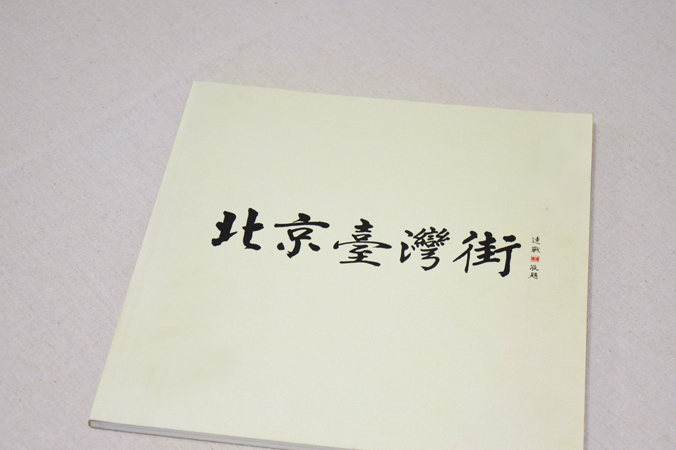 北京臺灣街
連戰
敬題